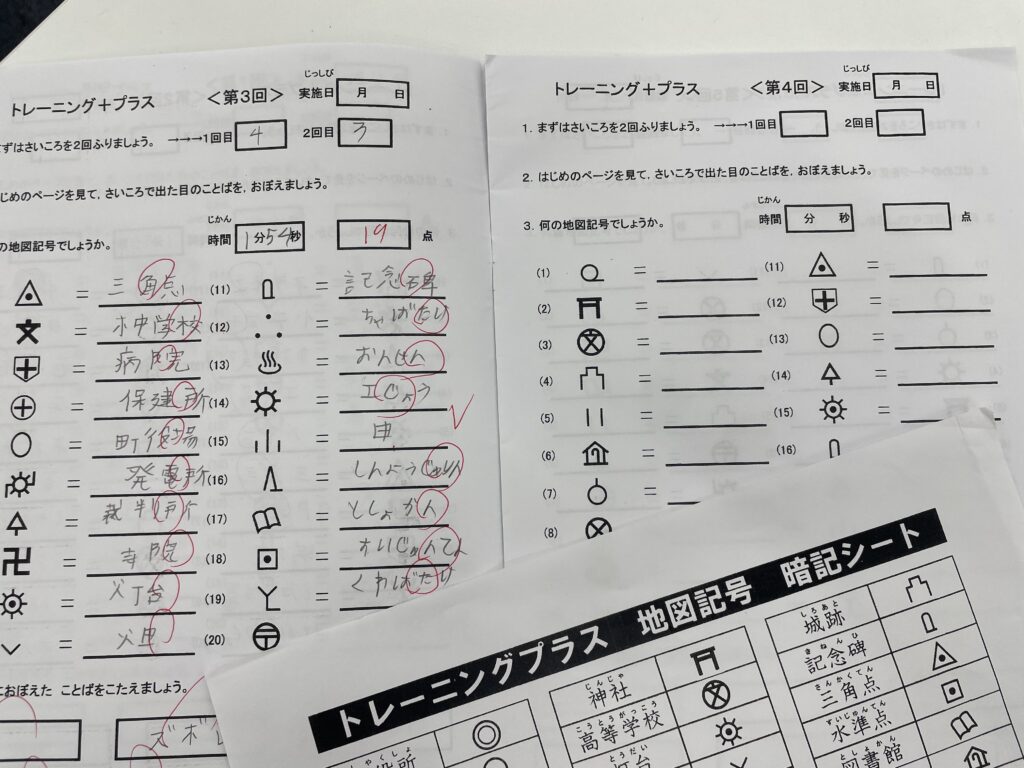 トレーニング+プラス <第3回> じっしび 実施日 月 日
ずはさいころを2回ふりましょう。 →→→1回目 4 2回目 3
じめのページを見て、さいころで出た目のことばを、おぼえましょう。
の地図記号でしょうか。 じかん 時間 1分54秒 19 点
= 三角点 (11) = 記念碑
= 小中学校 (12) = ちゃばたけ
= 病院 (13) = おんせん
= 保健所 (14) = 工じょう
= 町役場 (15) = 田
= 発電所 (16) = しんようじゅりん
= 裁判所 (17) = としょかん
= 寺院 (18) = すいじゅんてん
= 灯台 (19) = くわばたけ
= 火田 (20)
おぼえた ことばをこたえましょう。
トレーニング+プラス <第4回> じっしび 実施日 月 日
1. まずはさいころを2回ふりましょう。 →→→1回目 2回目
2. はじめのページを見て、さいころで出た目のことばを、おぼえましょう。
3. 何の地図記号でしょうか。 じかん 時間 分 秒 点
(1) = (11) =
(2) = (12) =
(3) = (13) =
(4) = (14) =
(5) = (15) =
(6) = (16)
(7) =
(8) =
トレーニングプラス 地図記号 暗記シート
じんじゃ 神社
こうとうがっこう 高等学校
とうだい 灯台
しろあと 城跡
きねんひ 記念碑
さんかくてん 三角点
すいじゅんてん 水準点
としょかん 図書館